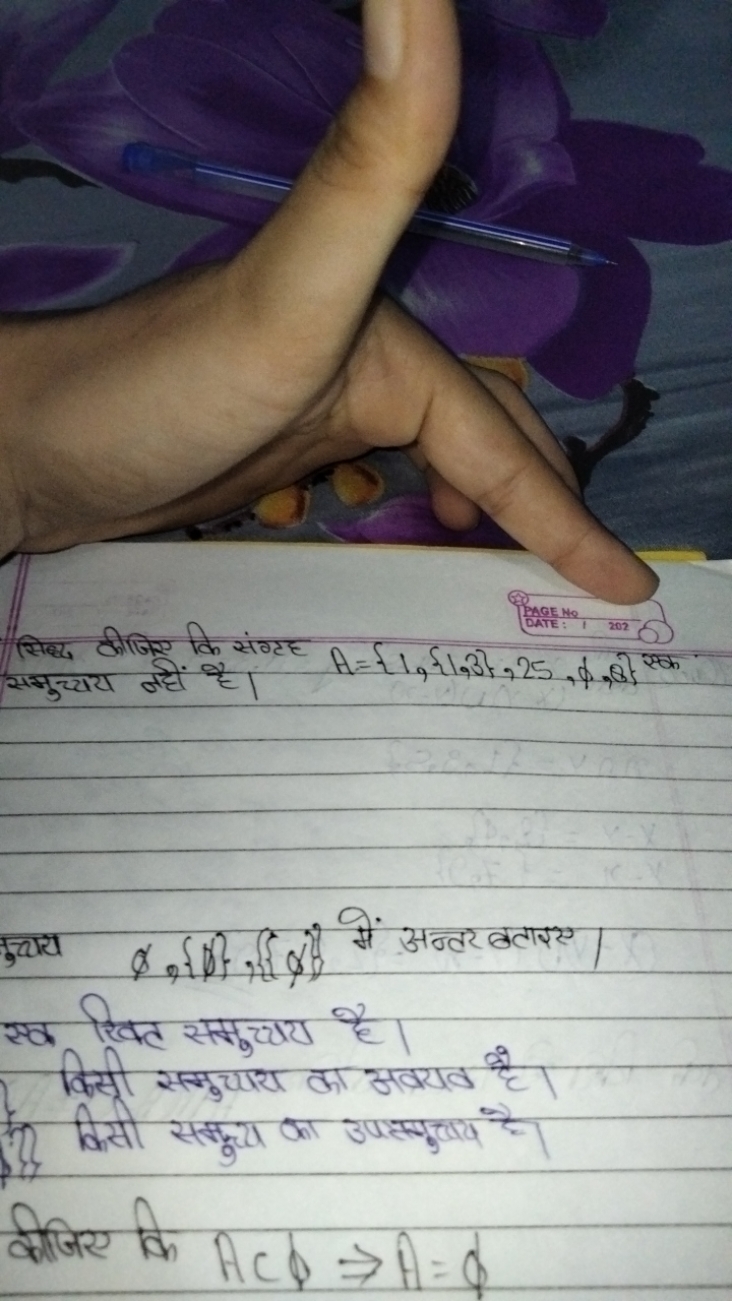 PAGE No
DATE: / 202
सिद्ध कीजिए कि संग्रह A={1,{1,3},25,ϕ,8} एक
समुच्चय नहीं है।
ϕ,{ϕ},{{ϕ}} में अन्तर बताइए।
एक रिक्त समुच्चय है।
किसी समुच्चय का अवयव है।
किसी समुच्य का उपसमुच्चय है।
कीजिए कि A⊂ϕ ⇒ A=ϕ